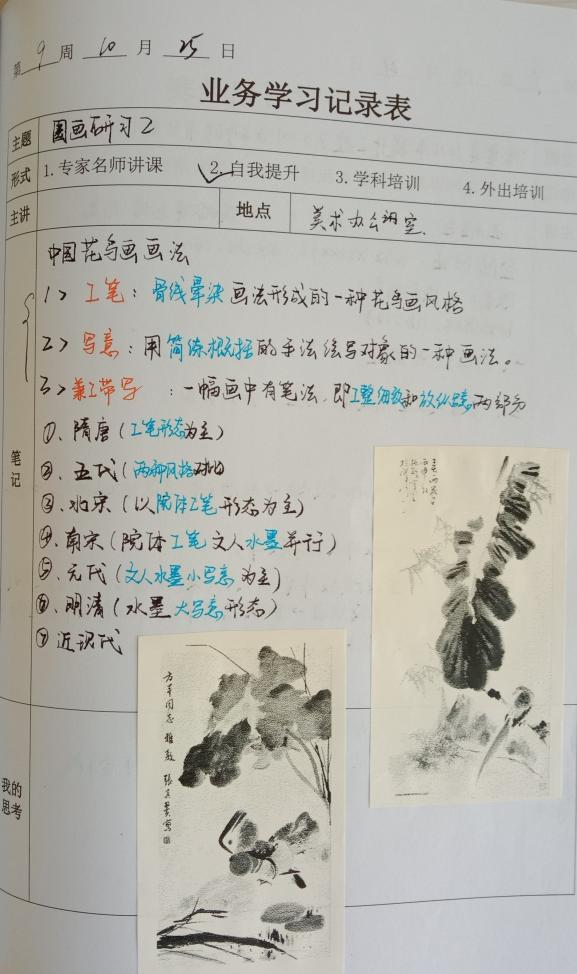 第9周 10月 25日
业务学习记录表
主题 国画研习2
形式 1.专家名师讲课 2.自我提升 3.学科培训 4.外出培训
主讲 地点 美术办公室.
笔记
中国花鸟画画法
1> 工笔：骨线晕染画法形成的一种花鸟画风格
2> 写意：用简练概括的手法绘写对象的一种画法。
3>兼工带写：一幅画中有笔法,即工整细致和放纵写意两部分
①、隋唐(工笔形态为主)
②、五代(两种风格对比)
③、北宋(以院体工笔形态为主)
④、南宋(院体工笔文人水墨并行)
⑤、元代(文人水墨小写意为主)
⑥、明清(水墨大写意形态)
⑦近现代
我的
思考